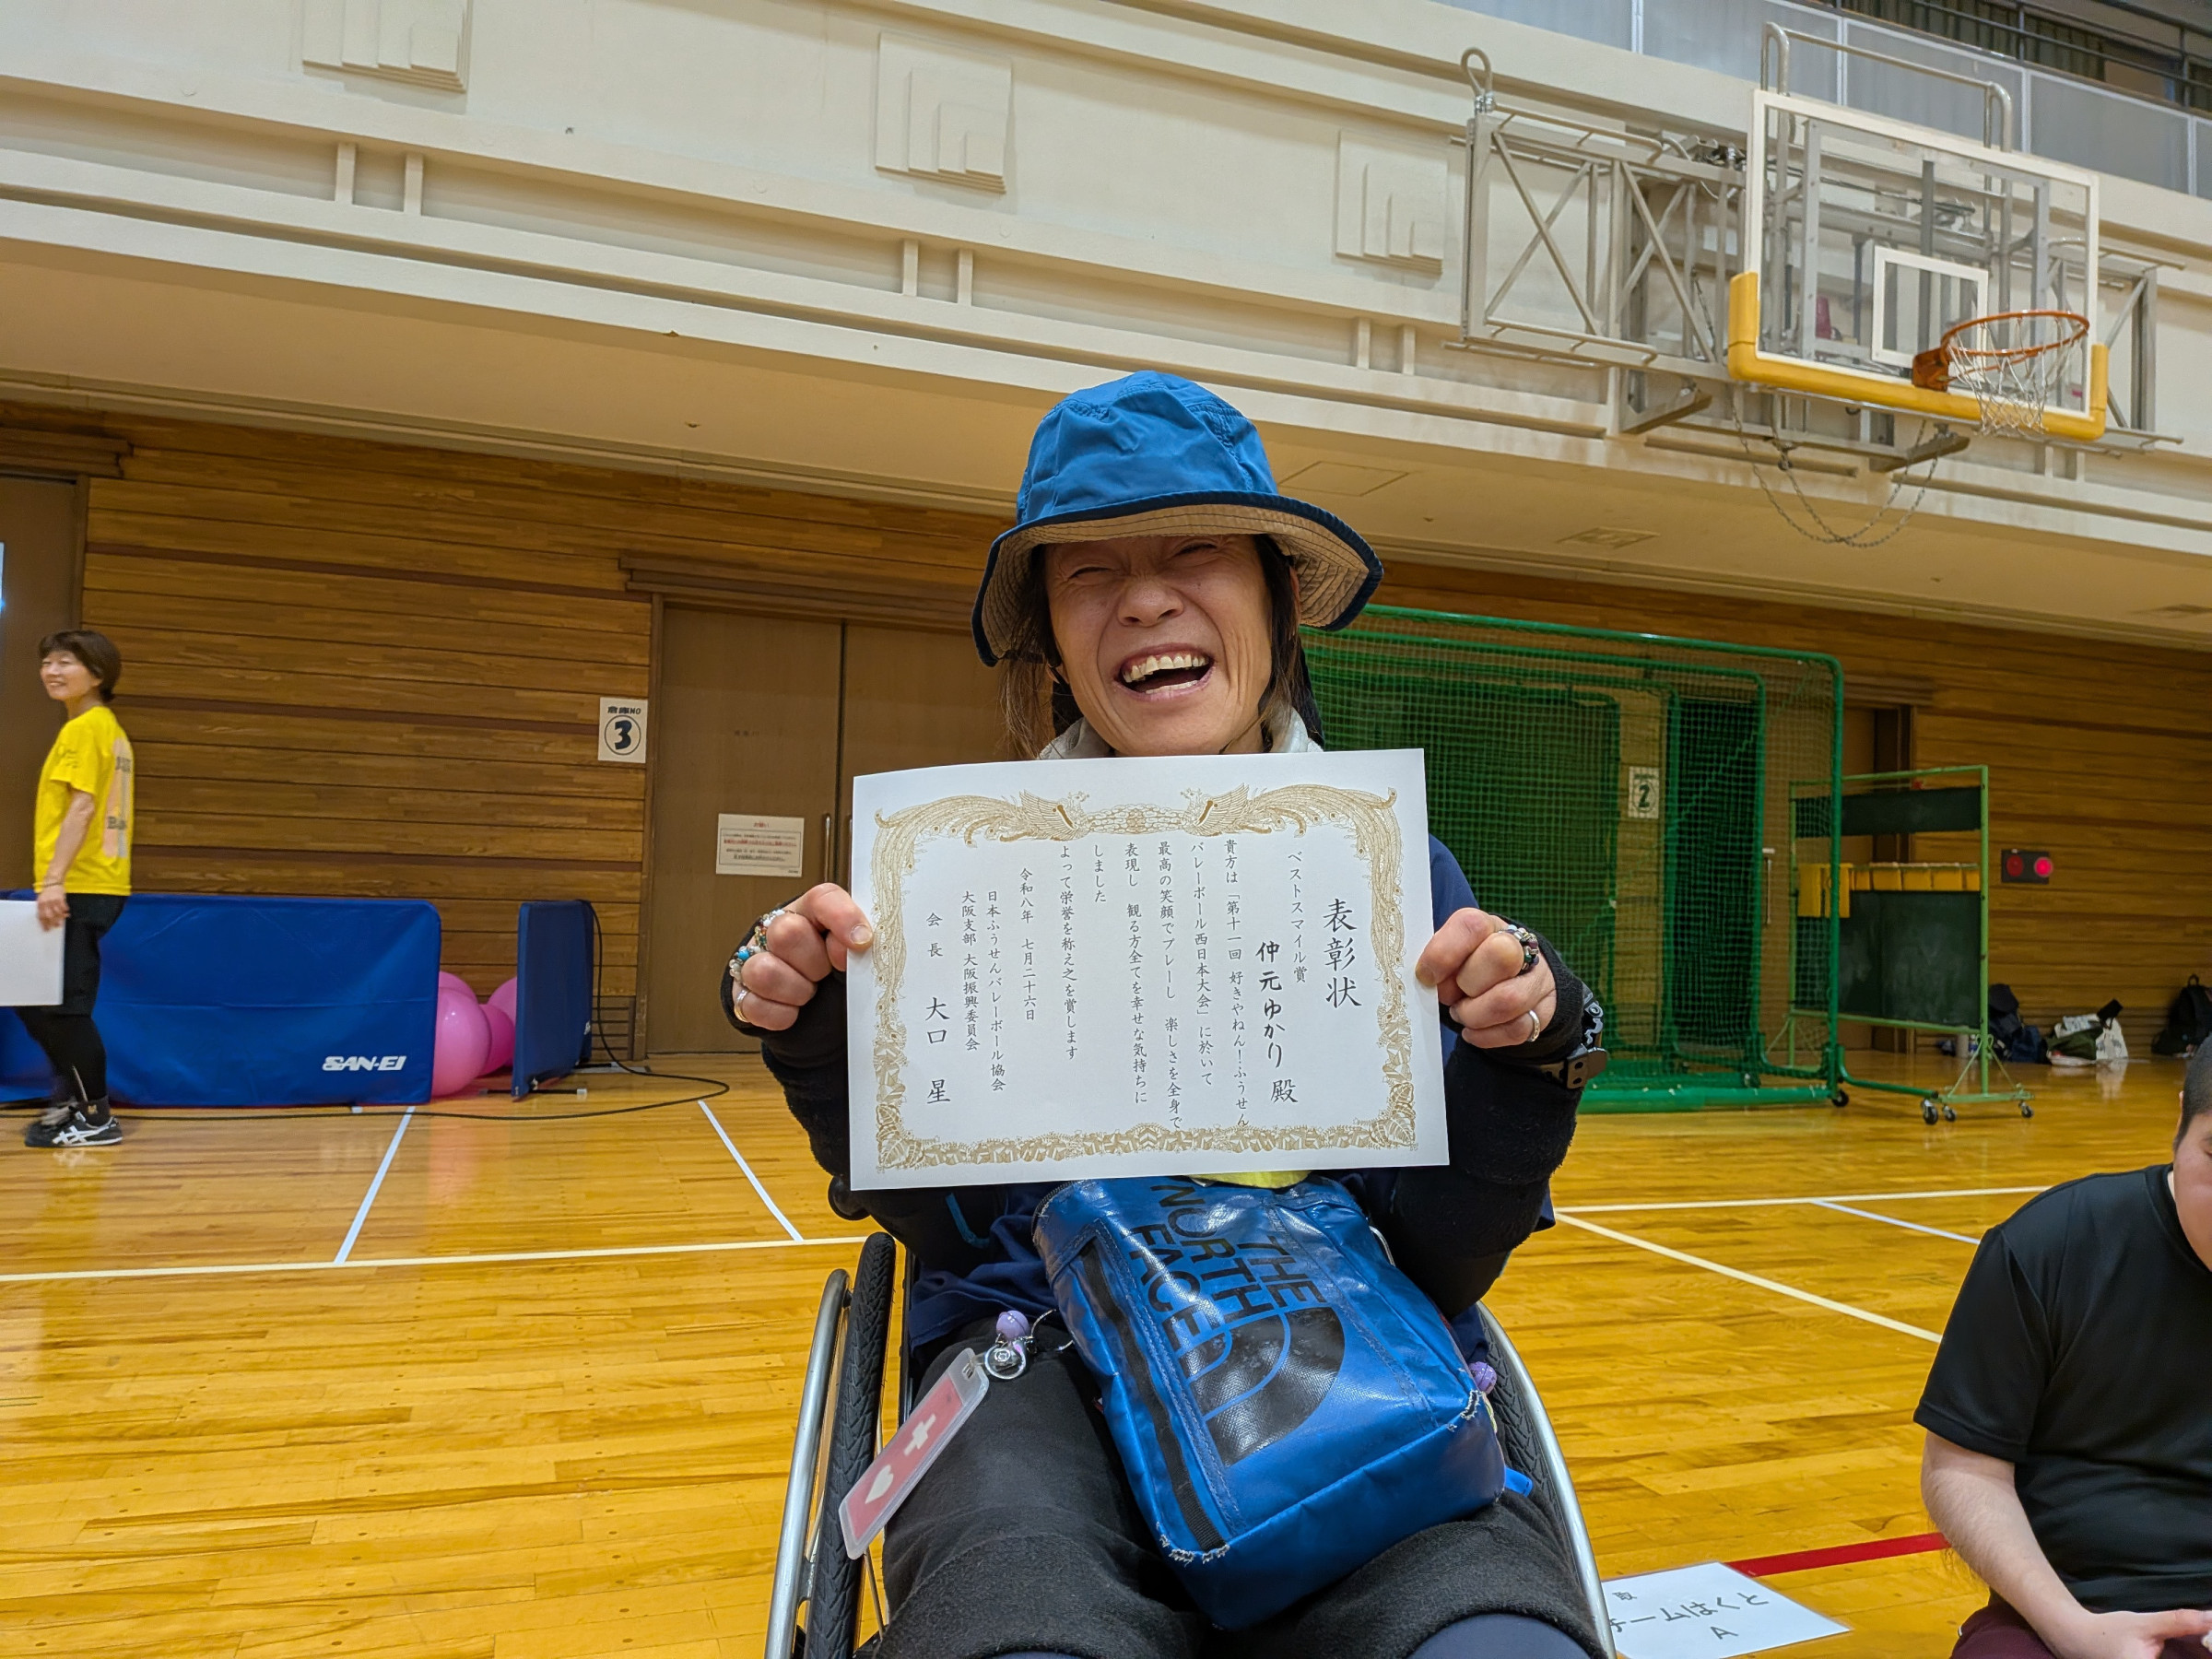 表彰状
ベストスマイル賞
仲元ゆかり 殿
貴方は「第十一回 好きやねん!ふうせん
バレーボール西日本大会」に於いて
最高の笑顔でプレーし 楽しさを全身で
表現し 観る方全てを幸せな気持ちに
しました
よって栄誉を称え之を賞します
令和八年 七月二十六日
日本ふうせんバレーボール協会
大阪支部 大阪振興委員会
会長 大口 星
倉庫NO
3
2
SAN-EI
THE
NORTH
FACE
チームはくと
A